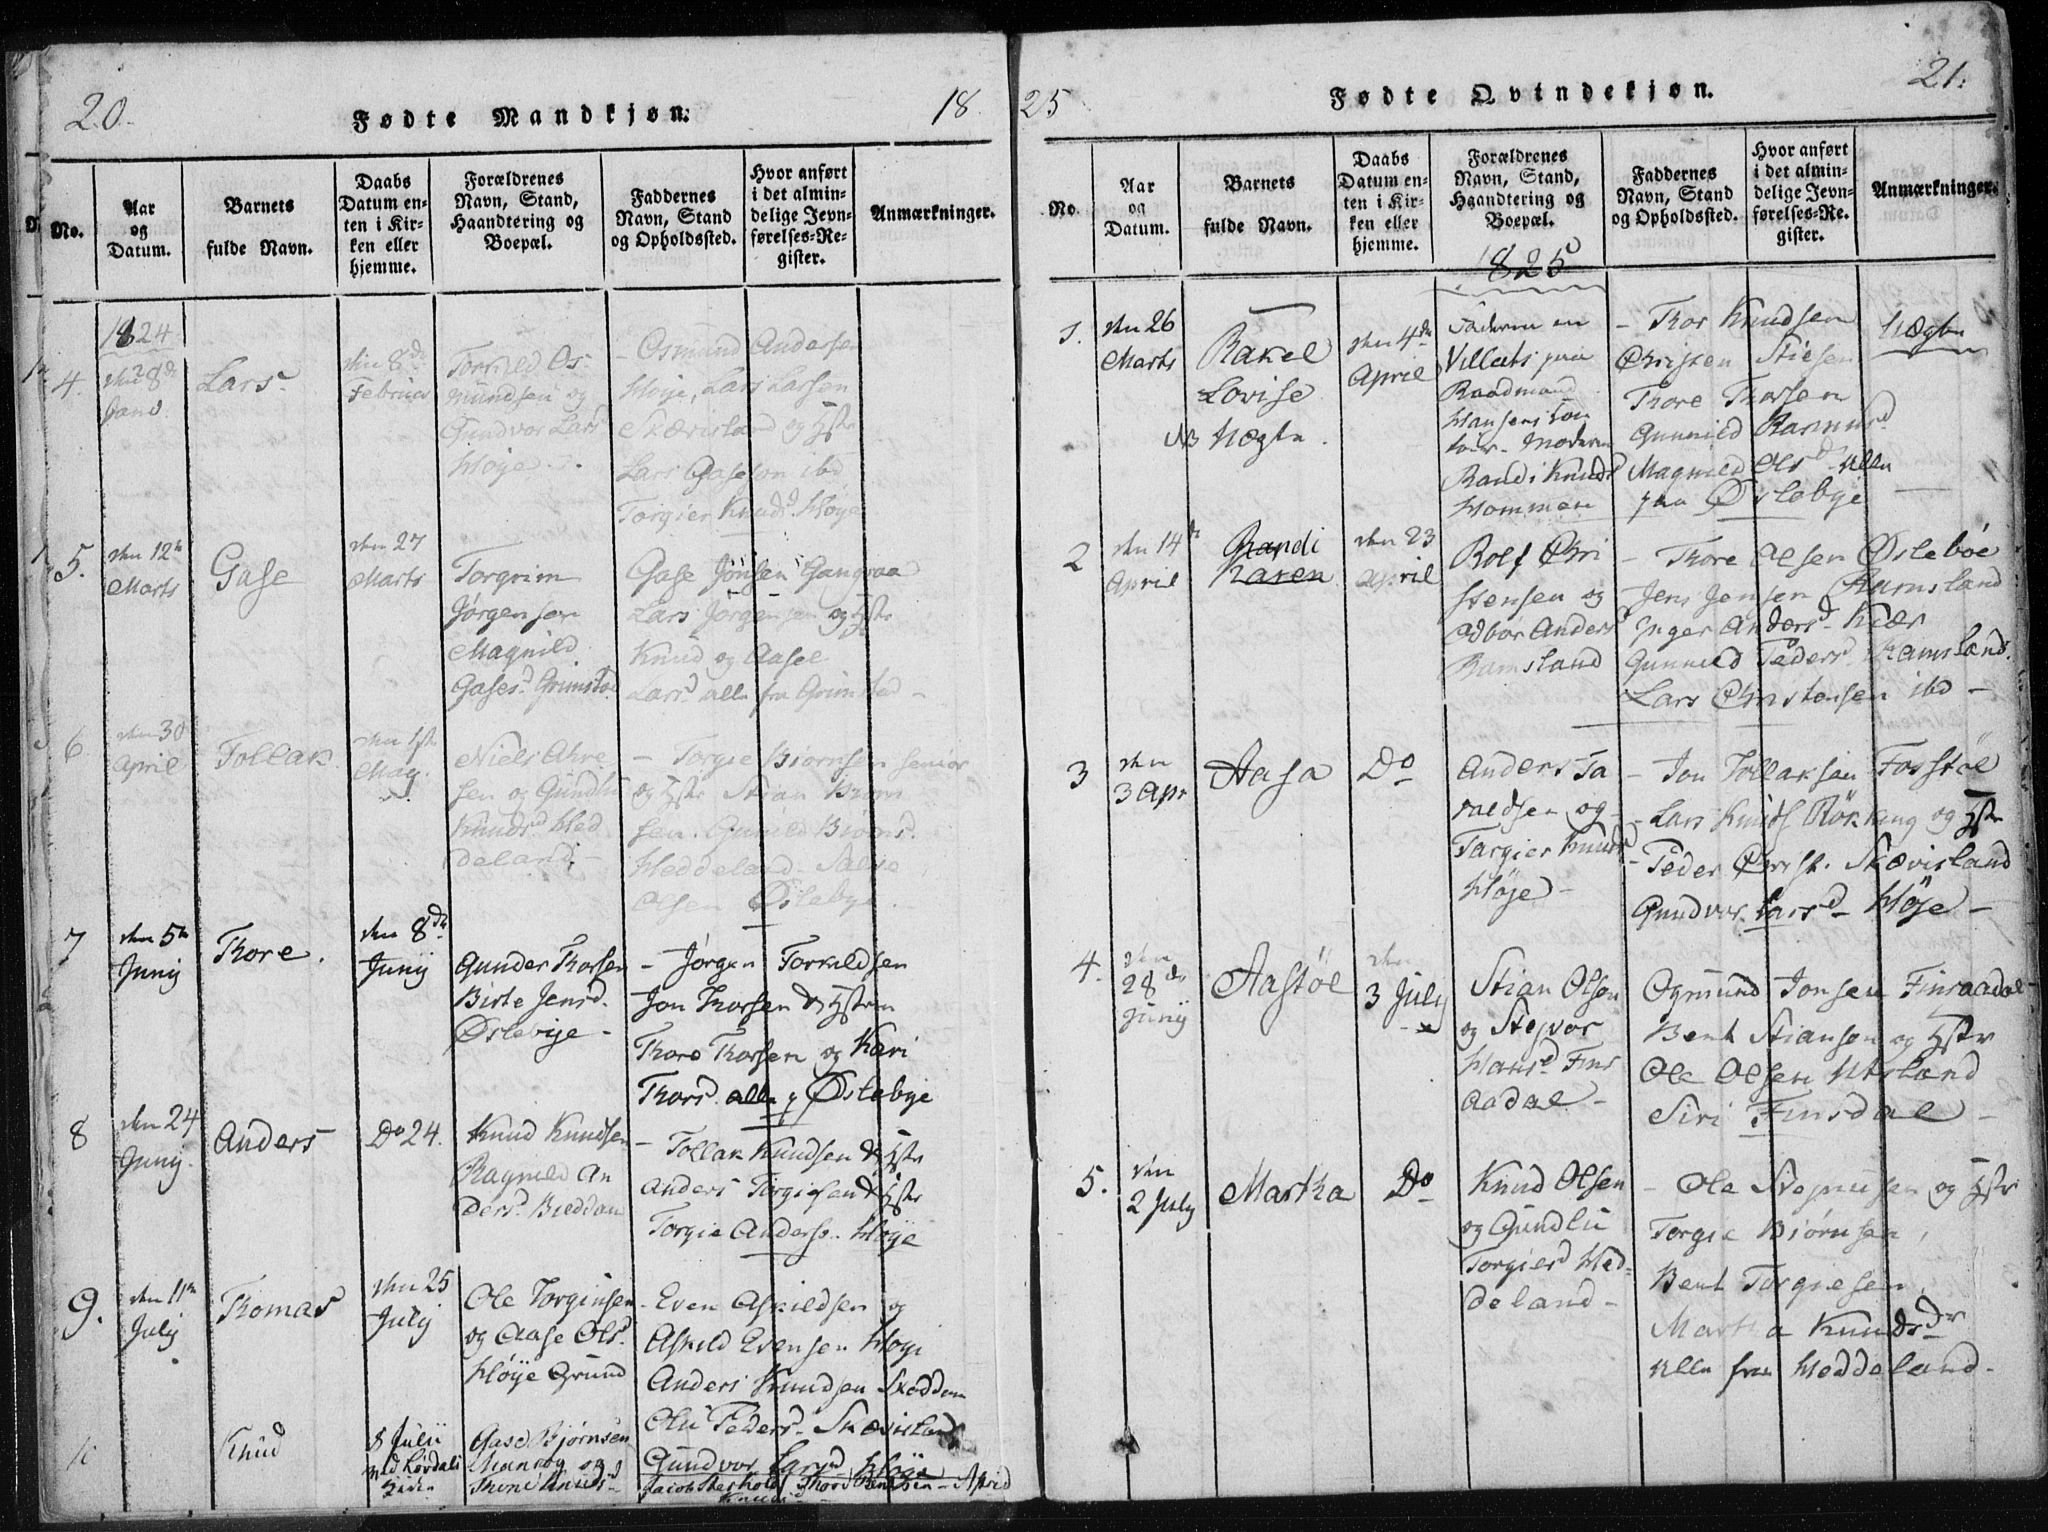 20.
Fødte Mandkjøn.
18
No.
Aar og Datum.
Barnets fulde Navn.
Daabs Datum enten i Kirken eller hjemme.
Forældrenes Navn, Stand, Haandtering og Boepæl.
Faddernes Navn, Stand og Opholdssted.
Hvor anført i det almindelige Jevnførelses-Register.
Anmærkninger.
1824
4.
den 28de
Janv.
Lars
den 8de
Februar
Torkild Os-
mundsen og
Gundvor Lars
Høije
- Osmund Andersen
Høije, Lars Larsen
Skævisland og Hstr
Lars Gasesøn ibd
Torgier Knudsd Høye
5.
den 12te
Marts
Gase
den 27
Marts
Torgrim
Jørgensen
Magnild
Gasesd. Grimstøe
Gase Jönsen Gangraa
Lars Jørgensen og Hstr
Knud og Aasel
Larsd alle fra Grimsted -
6
den 30
April
Tollak
den 1ste
May
Niels Ahre
sen og Gundlu
Knudsd. Hed
deland -
- Torgie Biørnsen senior
og Hstr Stian Biørn
sen. Gunild Biørnsd.
Heddeland. 
Olsen Øslebye.
7
den 5te
Junij
Thore.
den 8de
Junij
Gunder Thorsen
Birte Jensd.
Øslebye -
- Jörgen Torkildsen
Jon Thorsen & Hstrn
Thore Thorsen og Kari
Thorsd. alle p Øslebye
8
den 24
Junij.
Anders
Do 24.
Knud Knudsen
Ragnild An
dersd. Bieddan
- Tollak Knudsen & Hstr
Anders Torgiesen & Hstr
Torgie Anderss. Høye
9.
den 11te
Julij
Thomas
den 25
Julij
Ole Torginsen
og Aase Olsd.
Höye Grund
- Even Askildsen og
Askild Evensen Höye
Anders Knudsen
Olu Pedersd. Skævisland
Gundvor Larsd Höye
Knud
8 Julii
Gase Bjørnsen
og
Knudsd
21.
25
Fødte Qvindekjøn.
No.
Aar og Datum.
Barnets fulde Navn.
Daabs Datum enten i Kirken eller hjemme.
Forældrenes Navn, Stand, Haandtering og Boepæl.
Faddernes Navn, Stand og Opholdssted.
Hvor anført i det almindelige Jevnførelses-Register.
Anmærkninger.
1825
1.
den 26
Marts
Rakel
Lovise
NB Uægte.
den 4de
April
Faderen en
Raadmand
Hansens
Moderen
Randi Knudsd
Hommen
- Thor Knudsen
Christen Stiesen
Thore Thorsen
Gunnild Rasmusd
Magnild Olsd - alle
paa Øslebye
Uægte
2
den 14de
April
Randi
Karen
den 23
April
Rolf Chri
stensen og
Adbor Andersd
Ramsland
- Thore Olsen Øslebøe
Jens Jensen Ramsland
Inger Andersd - Kiær
Gunnild Pedersd. Ramsland.
Lars Christensen ibd -
3
den
3 Apr
Aasa
Do
Anders Ta
raldsen og
Targier Knudsd
Höje -
- Jon Tollaksen Fosstöl
- Lars Knuds Röksung og Hstr
- Peder Christ. Skævisland
Gundvor Larsd - Höje -
4.
den
28de
Junij
Aastöl
den
3 July
Stian Olsen
og Stejvor
Hansd. Fins
aadal -
Ogmund Jonsen Finsaadal -
Bent Stiansen og Hstr
Ole Olsen Utsland
Siri Finsdal -
5.
den
2 July
Martha
Do
Knud Olsen
og Gundlu
Torgiersd Hed-
deland -
- Ole Stejnusen og Hstr
Torgie Biørnsen,
Bent Torgiesen
Martha Knudsdr
alle fra Heddeland -